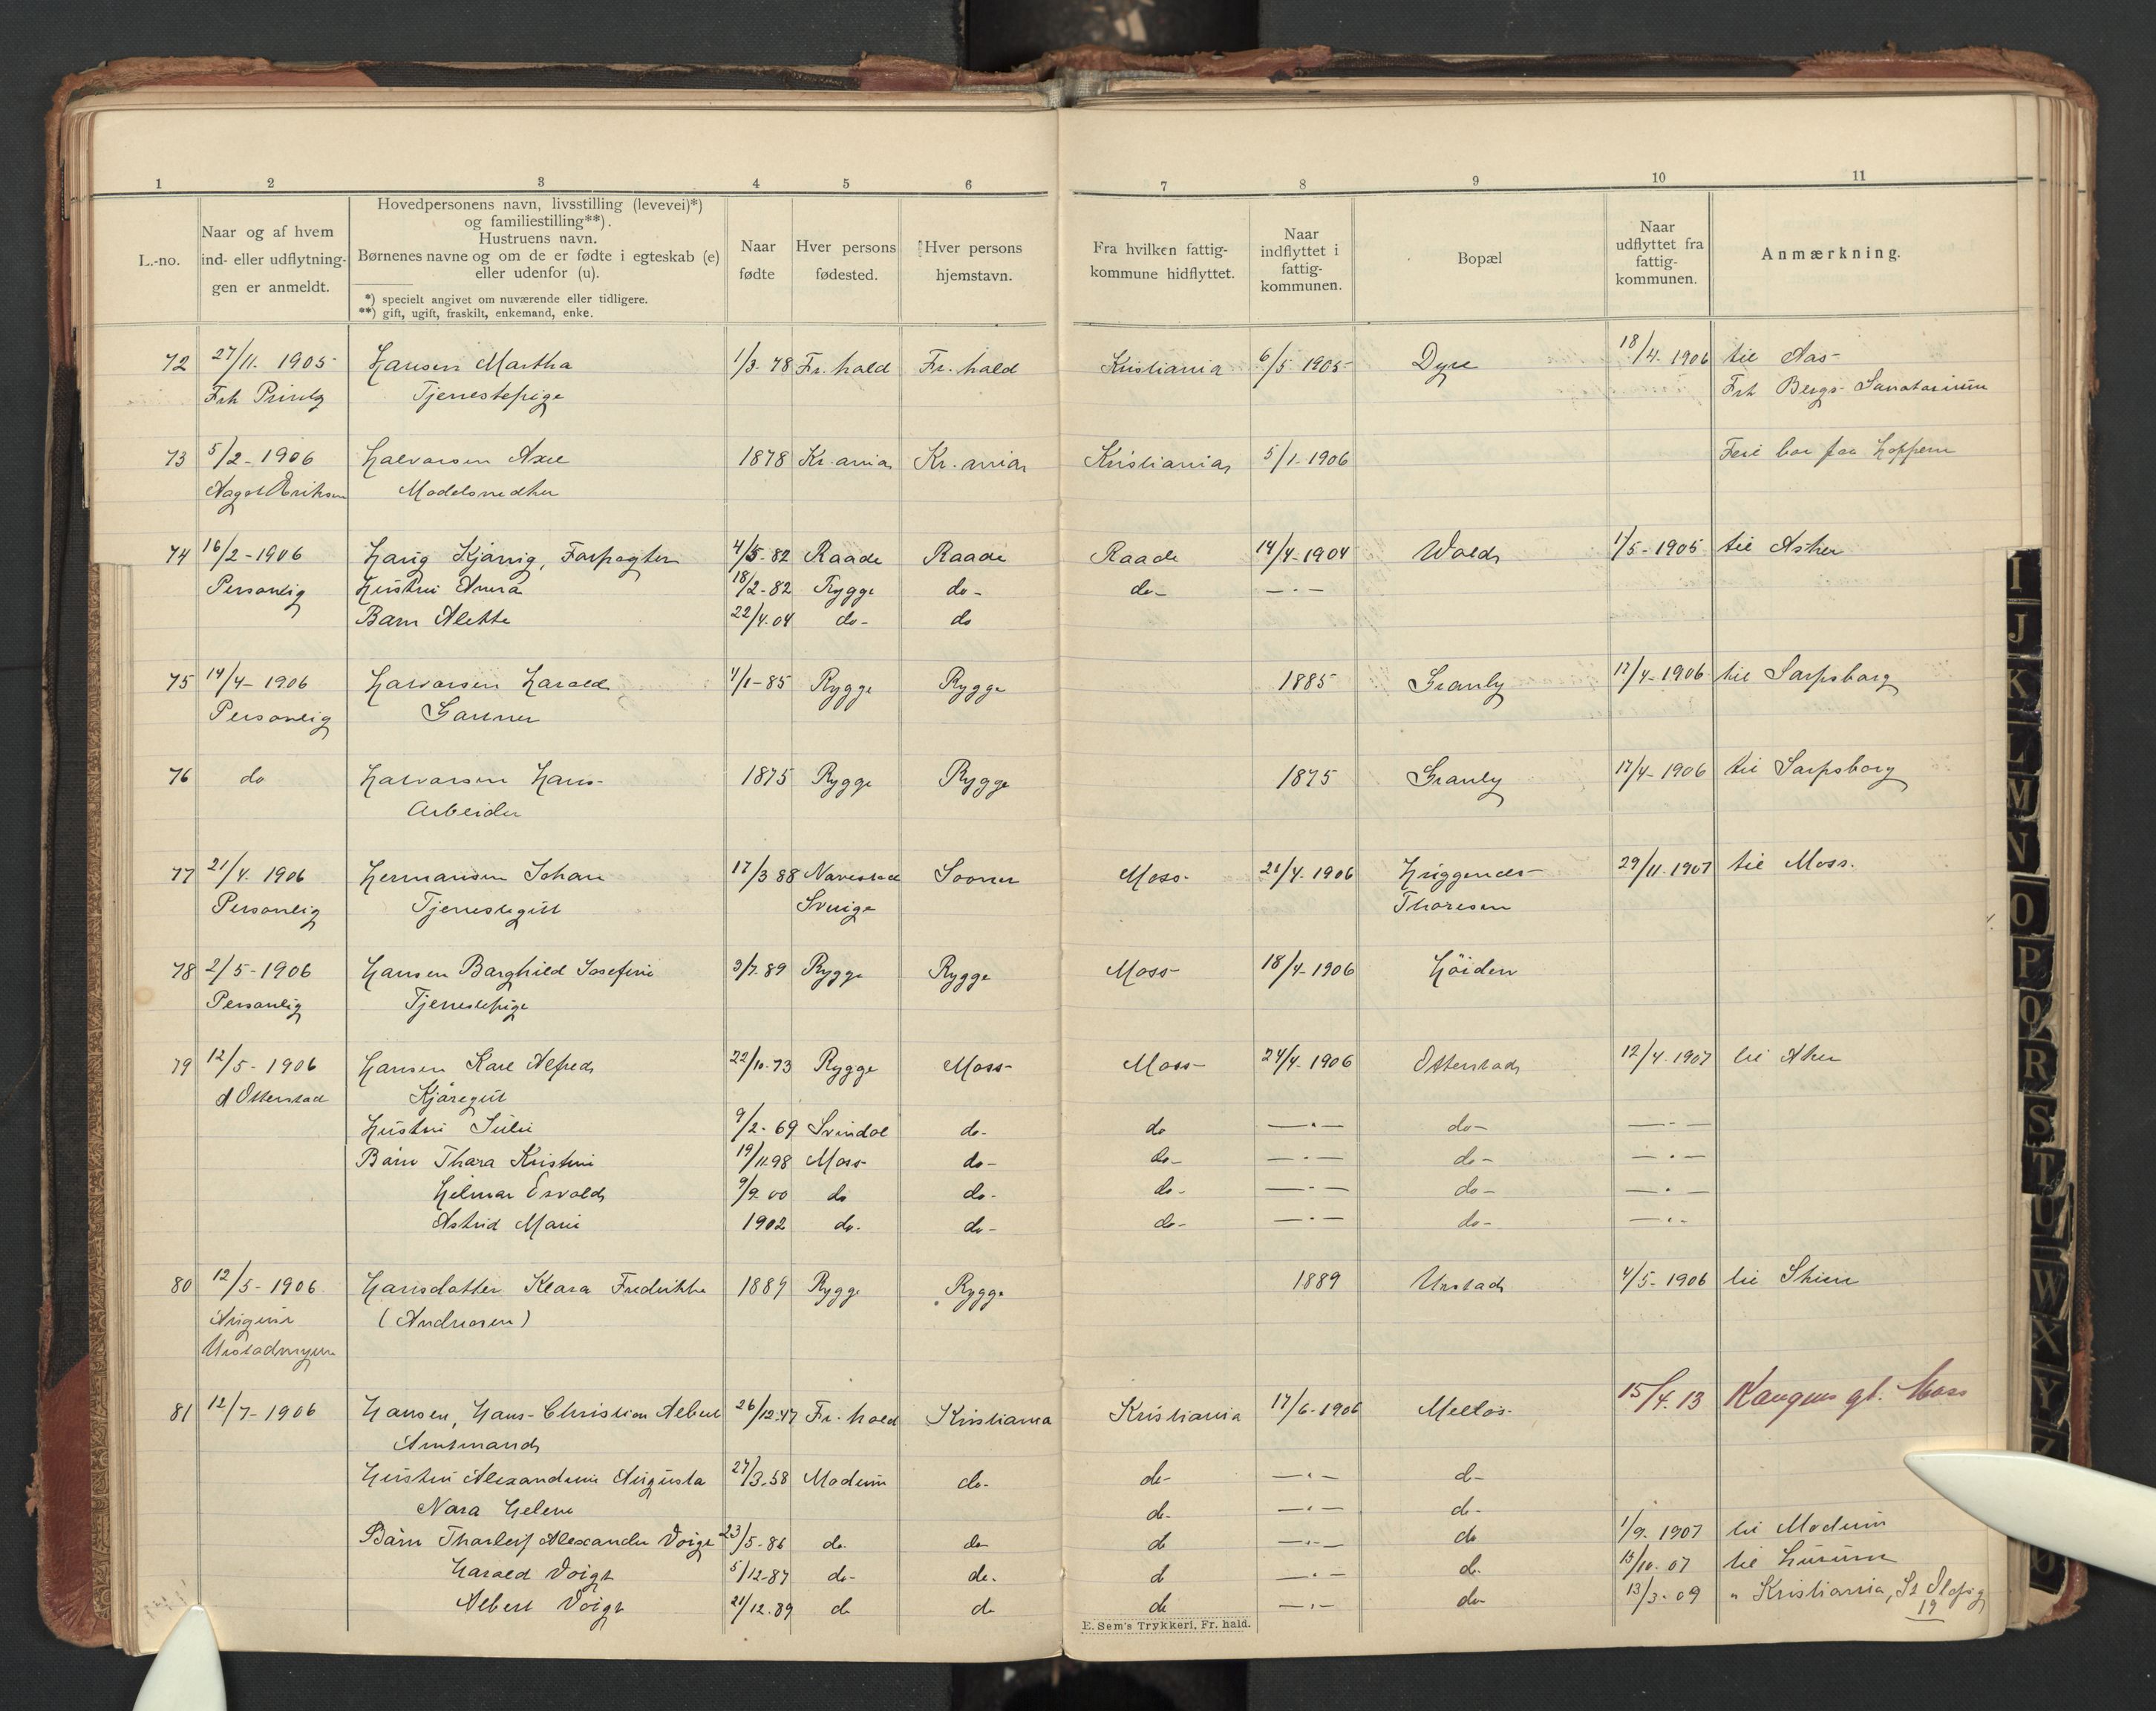 1 2 3 4 5 6 7 8 9 10 11
L.-no.
Naar og af hvem
ind- eller udflytnin-
gen er anmeldt.
Hovedpersonens navn, livsstilling (levevei)*)
og familiestilling**).
Hustruens navn.
Børnenes navne og om de er fødte i egteskab (e)
eller udenfor (u).
*) specielt angivet om nuværende eller tidligere.
**) gift, ugift, fraskilt, enkemand, enke.
Naar
fødte
Hver persons
fødested.
Hver persons
hjemstavn.
Fra hvilken fattig-
kommune hidflyttet.
Naar
indflyttet i
fattig-
kommunen.
Bopæl
Naar
udflyttet fra
fattig-
kommunen.
Anmærkning.
72 27/11. 1905 Hansen Martha 1/3-78 Fr. hald Fr. hald Kristiania 6/5 1905 Dyre 18/4. 1906 til Aas
Frk Printz Tjenestepige Frk Bergs Sanatorium
73 5/2-1906 Halvorsen Axel 1878 Kr.ania Kr.ania Kristiania 5/1-1906 bor paa Hoppern
Aagot Eriksen
74 16/2-1906 Harig Kjønig, Forpagter 4/5-82 Raade Raade Raade 14/4-1904 Wold 1/5-1905 til Asker
Personlig Hustru Anna 18/2-82 Rygge do- do- — · —
Barn Alette 22/4.04 do- do
75 14/4-1906 Halvorsen Harald 1/1-85 Rygge Rygge 1885 Granly 17/4-1906 til Sarpsborg
Personlig Gartner
76 do Halvorsen Hans 1875 Rygge Rygge 1875 Granly 17/4-1906 til Sarpsborg
Arbeider
77 21/4. 1906 Hermansen Johan 17/3 88 Navestad Sooner Moss 21/4. 1906 29/11.1907 til Moss.
Personlig Tjenestegut Sverige Thoresen
78 2/5-1906 Hansen Borghild Josefine 3/7.89 Rygge Rygge Moss 18/4-1906 Høiden
Personlig Tjenestepige
79 12/5-1906 Hansen Karl Alfred 22/10.73 Rygge Moss Moss 24/4.1906 Otterstad 12/4.1907 til Aker
A Otterstad Kjøregut
Hustru Julie 9/2-69 Svindal do- do — · — do- — · —
Børn Thora Kristine 19/11.98 Moss do- do- — · — do- — · —
Hilmar Osvald 9/9.00 do do- do- — · — do- — · —
Astrid Marie 1902 do. do- do- — · — do- — · —
80 12/5-1906 Hansdatter Klara Fredrikke 1889 Rygge Rygge 1889 Urstad 4/5-1906 til Skien
(Andresen)
81 12/7-1906 Hansen, Hans Christian Albert 26/12.47 Fr. hald Kristiania Kristiania 17/6-1906 Melløs 15/4.13 Kongens gt. Moss
Amtmand
Hustru Alexandrine Augusta 27/3.58 Modum do. do- — · — do-
Nora Helene do- — · — do-
Børn Thorleif Alexander Voigt 23/5-86 do. do do — · — do 1/9.1907 til Modum
Harald Voigt 5/12-87 do- do. do — · — do. 15/10.07 til Hurum
Albert Voigt 21/12.89 do do do — · — do- 13/3-09 " Kristiania, St Olafsg
19
E. Sem's Trykkeri, Fr. hald.
I
J
K
L
M
N
O
P
Q
R
S
T
U
W
X
Y
Z
Ø